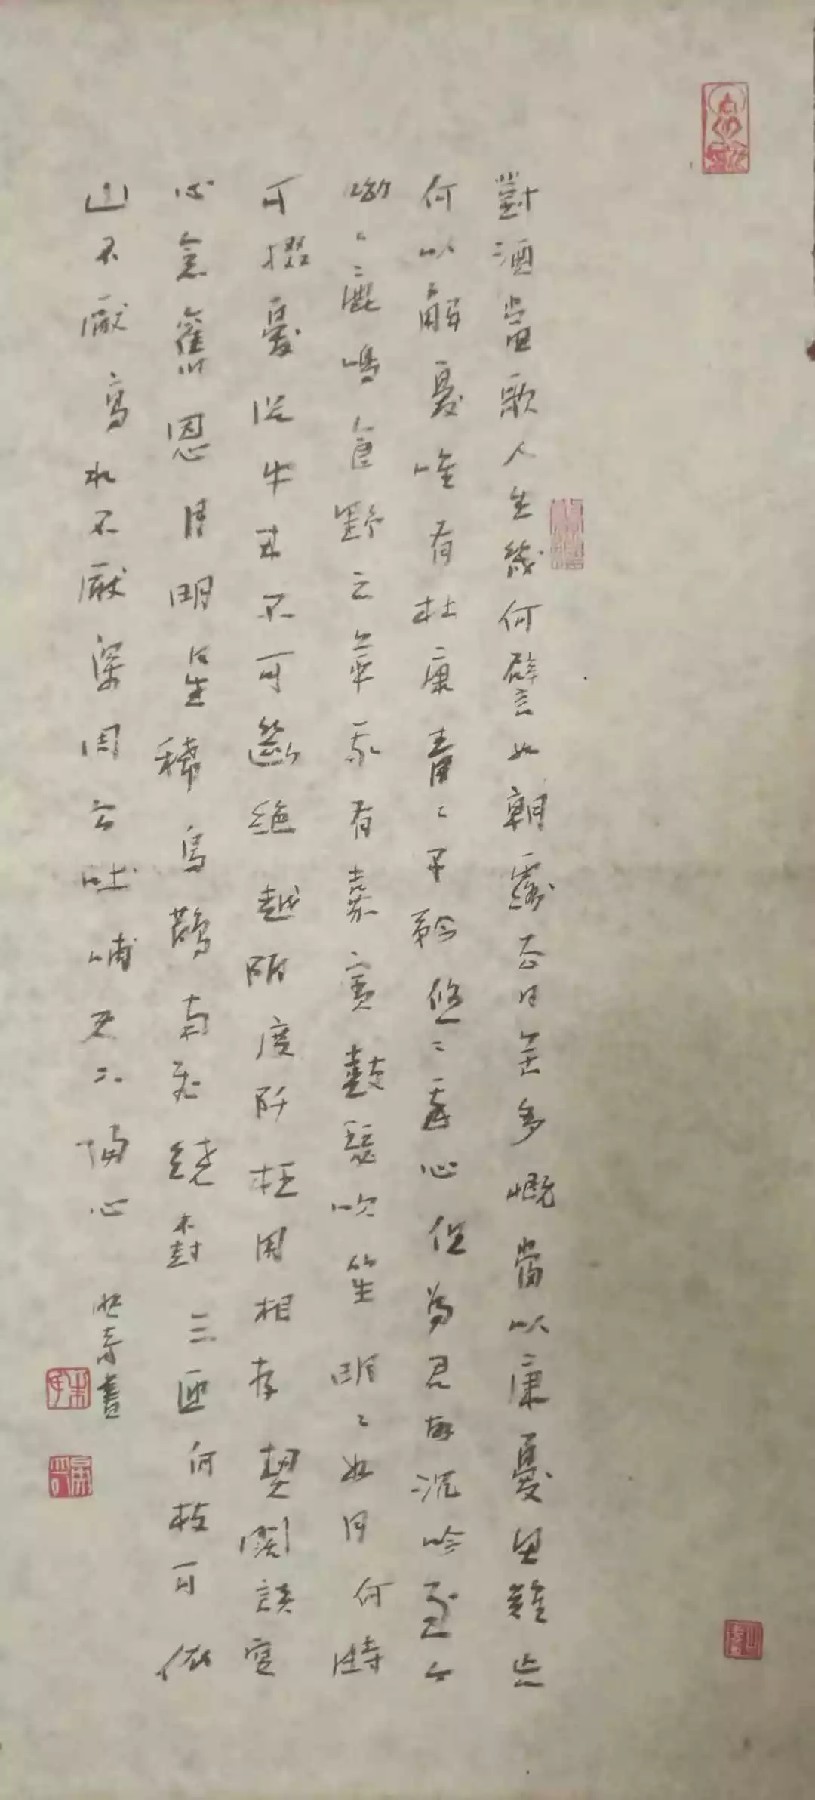 對酒當歌人生幾何譬如朝露去日苦多慨當以康憂思難忘
何以解憂唯有杜康青〻子衿悠〻我心但為君故沉吟至今
呦〻鹿鳴食野之苹我有嘉賓鼓瑟吹笙明〻如月何時
可掇憂從中來不可斷絕越陌度阡枉用相存契闊談宴
心念舊恩月明星稀烏鵲南飛繞樹三匝何枝可依
山不厭高水不厭深周公吐哺天下歸心
書